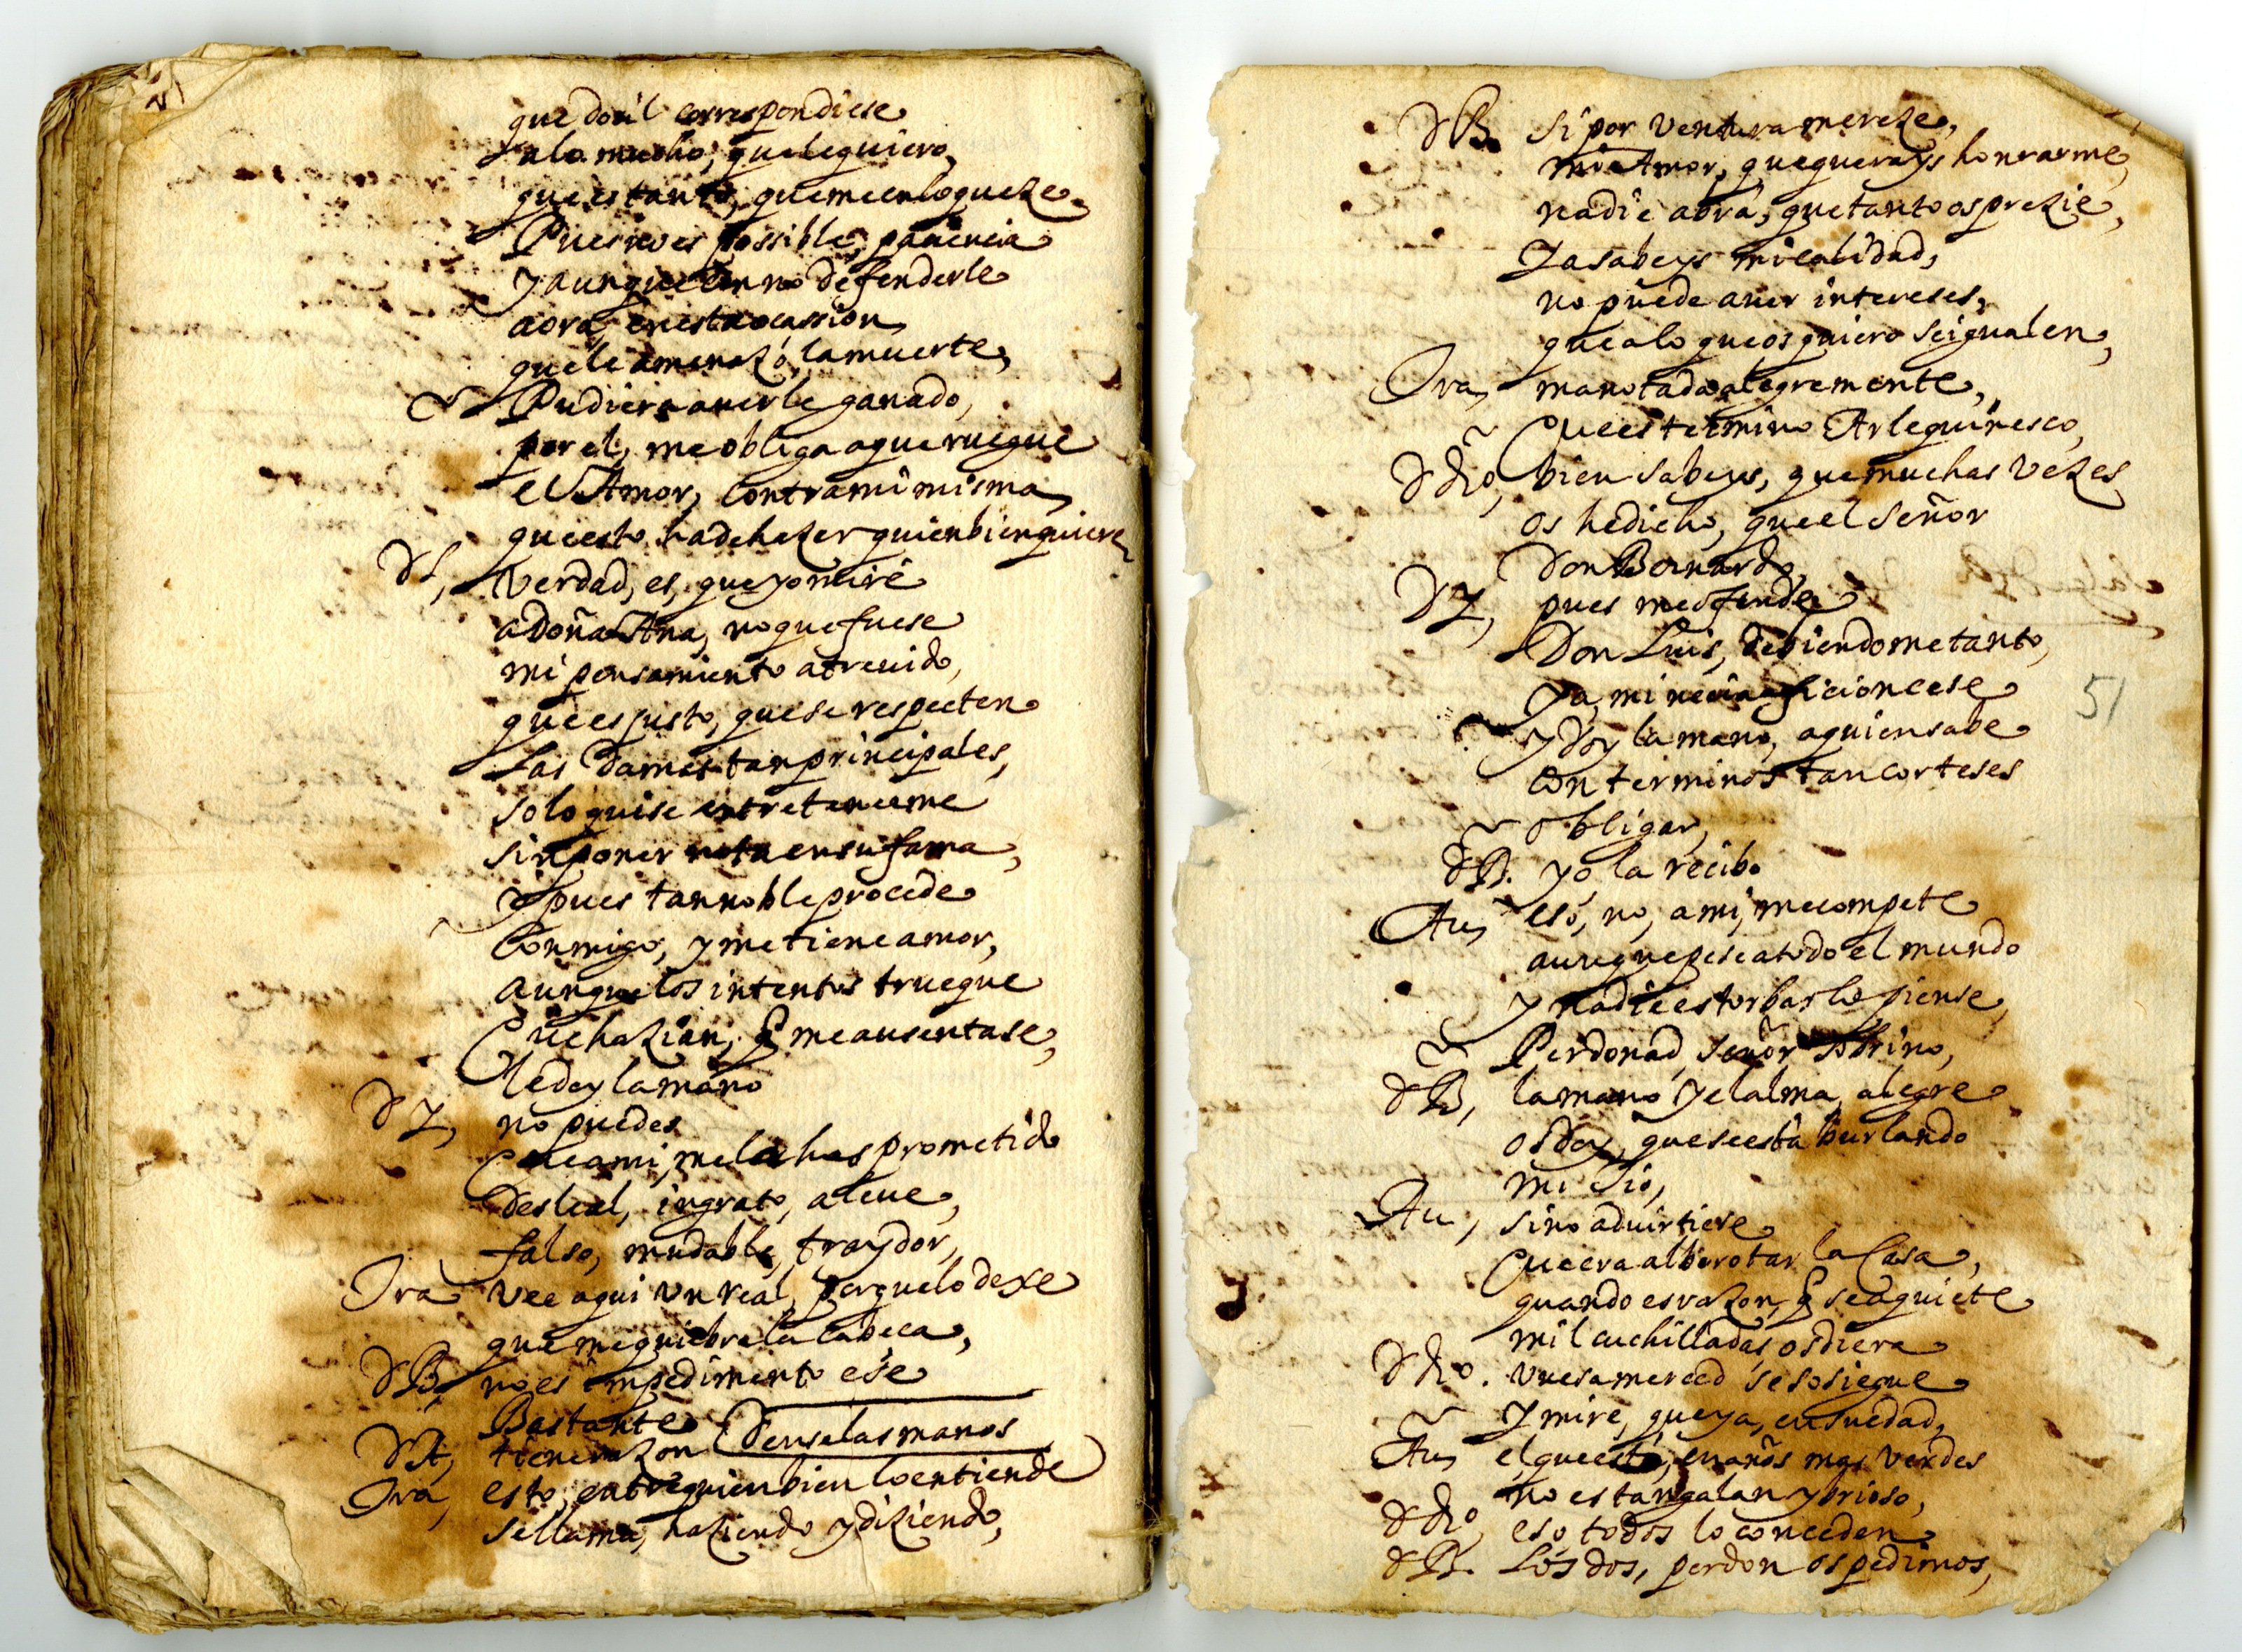 que doñ l correspondiese
alo mucho, que le quiero,
que es tanto, que me enloqueze.
Pues no es possible, paciencia
y aunque con no defenderle
aora, en esta ocassion
que le amenazó, la muerte,
Pudiera auerle ganado,
por el, me obliga a que ruegue
el Amor, contra mi misma,
que esto, ha de hazer quien bien quiere
Dl, Verdad, es, que yo miré
a Doña Ana, no que fuese
mi pensamiento atreuido,
que es justo, que se respecten
Las Damas tan principales,
solo quise entretenerme
sin poner nota en su fama,
y pues tan noble procede
Conmigo, y me tiene amor,
aunque los intentos trueque
Que hazian, q̃ me ausentase,
le doy la mano
DJ, no puedes
Que a mi, me la has prometido
Desleal, ingrato, aleue,
falso, mudable, traydor,
Tra Vee aqui Vn real, porque lo dexe
que me quiebre la cabeca,
DB, no es impedimento ese
Bastante
DA, tiene razon Dense las manos
Tra, esto, entre quien bien lo entiende
se llama, haziendo y diziendo,
DB. Si por Ventura mereze,
mi Amor, que querays honrarme,
nadie abrá, que tanto os prezie,
Ya sabeys mi calidad,
no puede auer intereses,
que a lo que os quiero se igualen,
Tra, manotada alegremente,
Que es termino Arlequinesco,
D dro, bien sabeys, que muchas Vezes
os he dicho, que el Señor
Don Bernardo,
DJ, pues me ofende
Don Luis, debiendome tanto,
ya, mi necia aficion cese
y doy la mano, a quien sabe
con terminos tan corteses
obligar,
DB. yo la recibo
Au, eso, no, a mi, me compete
aunque pese a todo el mundo
y nadie estorbarlo piense,
Perdonad, señor sobrino,
DB, la mano y el alma, alegre
os doy, que se està burlando
mi tio,
Au, si no aduirtiere
Que era alborotar la Casa,
quando es razon, q̃ se aquiete
mil cuchilladas os diera
D dro. Vuesa merced se sosiegue
Y mire, que ya, en su edad,
Au, el que està, en años mas Verdes
no es tan galan y brioso,
D dro, eso, todos lo conceden
DB. Los dos, perdon os pedimos,
51